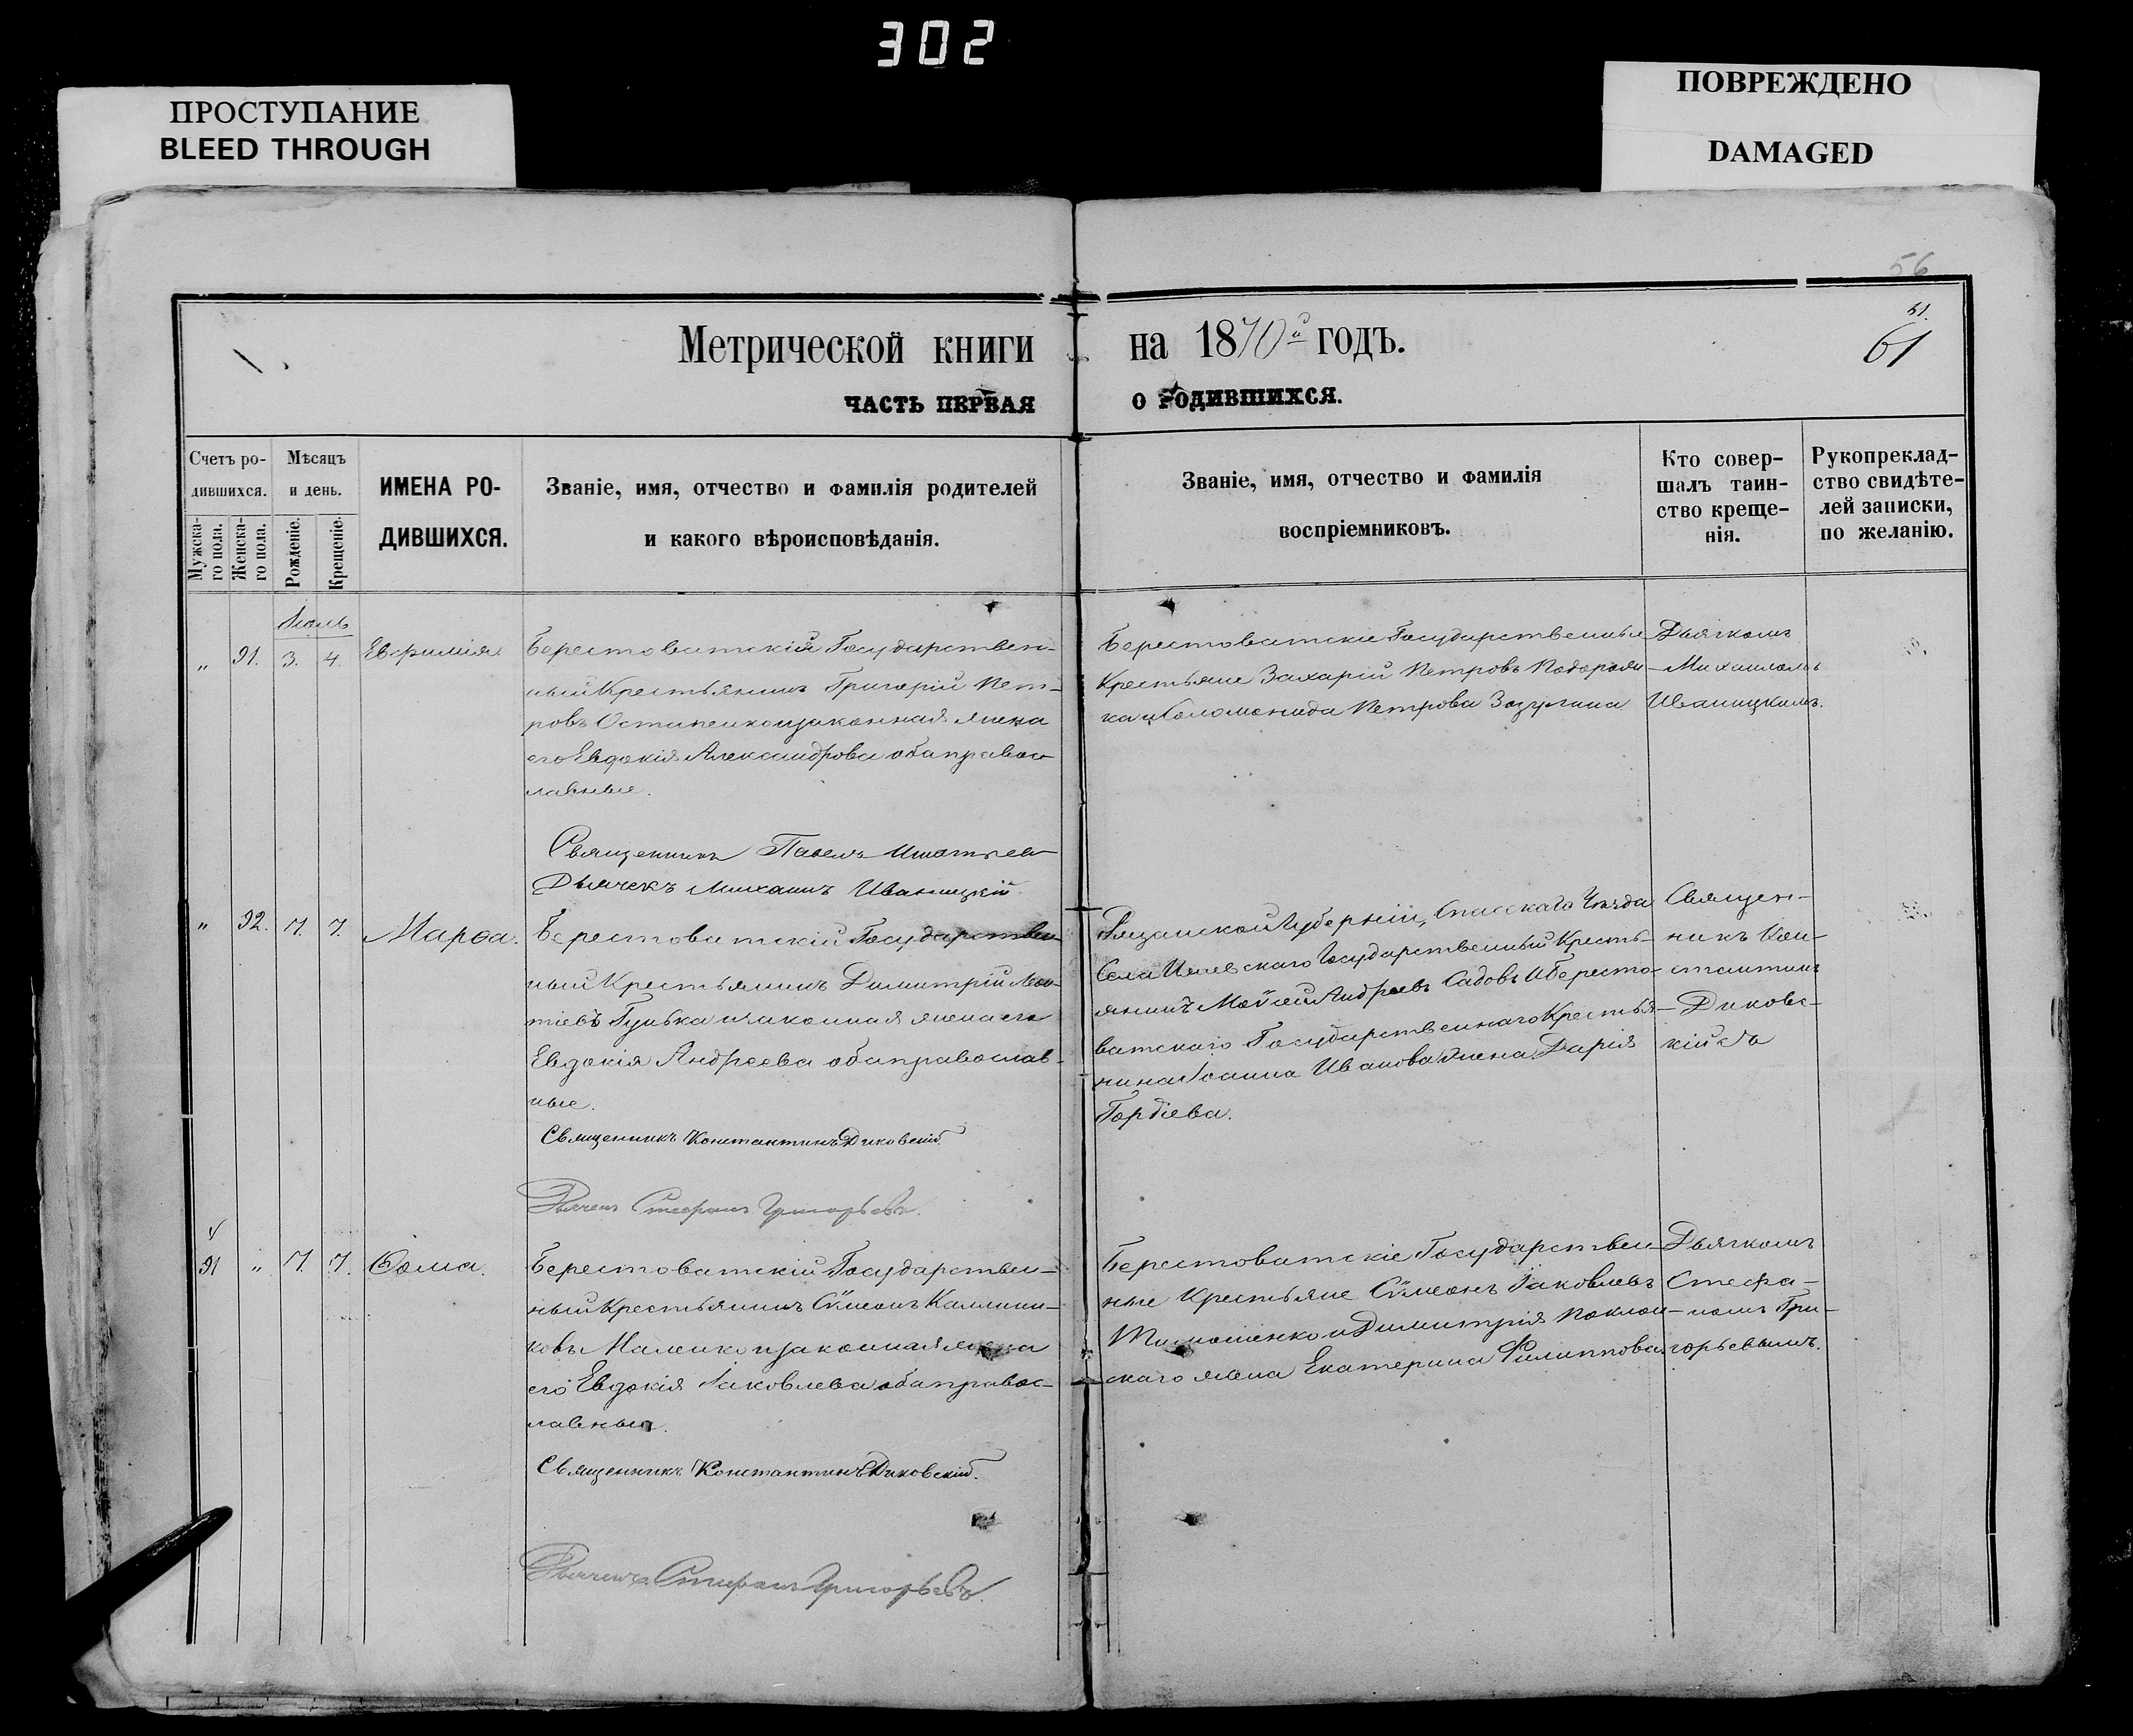 302
ПРОСТУПАНИЕ
BLEED THROUGH
ПОВРЕЖДЕНО
DAMAGED
56
51.
61
Метрической книги на 1870й годъ.
ЧАСТЬ ПЕРВАЯ О РОДИВШИХСЯ.
Счетъ ро-
дившихся.
Мужска-
го пола.
Женска-
го пола.
Мѣсяцъ
и день.
Рожденіе.
Крещеніе.
ИМЕНА РО-
ДИВШИХСЯ.
Званіе, имя, отчество и фамилія родителей
и какого вѣроисповѣданія.
Званіе, имя, отчество и фамилія
воспріемниковъ.
Кто совер-
шалъ таин-
ство креще-
нія.
Рукоприклад-
ство свидѣте-
лей записки,
по желанію.
Іюль
„ 91. 3. 4. Евфимія
Берестоватскій Государствен-
ный Крестьянинъ Григорій Пет-
ровъ Остапенко и законная жена
его Евдокія Александрова оба правос-
лавные.
Священникъ Павелъ Игнатьев
Дьячекъ Михаилъ Иваницкій
Берестоватскіе Государственные
Крестьяне Захарій Петровъ
ка и Соломонида Петрова Зозулина
Дьячкомъ
Михаиломъ
Иваницкимъ.
„ 92. 7. 7. Марѳа.
Берестоватскій Государствен-
ный Крестьянинъ Димитрій Леон-
тіевъ Гунька и законная жена его
Евдокія Андреева оба православ-
ные.
Священникъ Константинъ Диковскій
Дьячекъ Стефанъ Григорьевъ.
Рязанской Губерніи, Спасскаго Уѣзда
Села Государственный Кресть-
янинъ Моѵсей Андреевъ Садовъ и Бересто-
ватскаго Государственнаго Крестья-
нина Іоанна Иванова жена Дарія
Гордіева.
Священ-
никъ Кон-
стантинъ
Диковс-
кій
91 „ 7. 7. Ѳома.
Берестоватскій Государствен-
ный Крестьянинъ Сѵмеонъ Каллини-
ковъ и законная жена
его Евдокія Іаковлева оба правос-
лавные.
Священникъ Константинъ Диковскій.
Дьячекъ Стефанъ Григорьевъ.
Берестоватскіе Государствен-
ные Крестьяне Сѵмеонъ Іаковлевъ
Тимошенко и Димитрія Поклон-
скаго жена Екатерина Филиппова.
Дьячкомъ
Стефа-
номъ Гри-
горьевымъ.